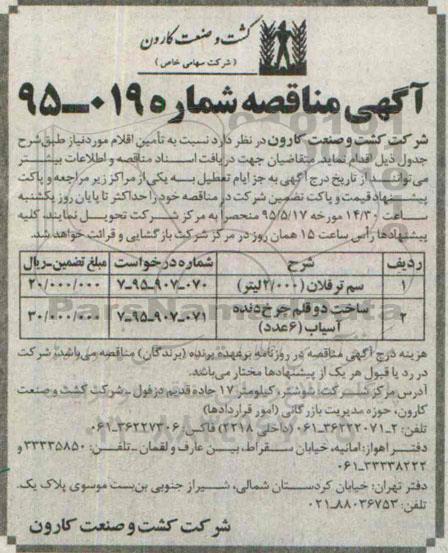 کشت و صنعت کارون
(شرکت سهامی خاص)
آگهی مناقصه شماره ۰۱۹ـ۹۵
شرکت کشت و صنعت کارون در نظر دارد نسبت به تأمین اقلام موردنیاز طبق شرح
جدول ذیل اقدام نماید. متقاضیان جهت دریافت اسناد مناقصه و اطلاعات بیشتر
می‌توانند از تاریخ درج آگهی به جز ایام تعطیل به یکی از مراکز زیر مراجعه و پاکت
پیشنهاد قیمت و پاکت تضمین شرکت در مناقصه خود را حداکثر تا پایان روز یکشنبه
ساعت ۱۴/۳۰ مورخه ۹۵/۵/۱۷ منحصراً به مرکز شرکت تحویل نمایند، کلیه
پیشنهادها رأس ساعت ۱۵ همان روز در مرکز شرکت بازگشایی و قرائت خواهد شد.
ردیف شرح شماره درخواست مبلغ تضمین-ریال
۱ سم ترفلان (۲/۰۰۰ لیتر) ۰۷۰-۹۰۷-۹۵-۷ ۲۰/۰۰۰/۰۰۰
۲ ساخت دو قلم چرخ‌دنده آسیاب (۶ عدد) ۰۷۱-۹۰۷-۹۵-۷ ۳۰/۰۰۰/۰۰۰
هزینه درج آگهی مناقصه در روزنامه برعهده برنده (برندگان) مناقصه می‌باشد، شرکت
در رد یا قبول هر یک از پیشنهادها مختار می‌باشد.
آدرس مرکز شرکت: شوشتر، کیلومتر ۱۷ جاده قدیم دزفول - شرکت کشت و صنعت
کارون، حوزه مدیریت بازرگانی (امور قراردادها)
تلفن: ۲-۳۶۲۲۲۰۷۱-۰۶۱ (داخلی ۲۲۱۸) فاکس: ۳۶۲۲۷۳۰۶-۰۶۱
دفتر اهواز: امانیه، خیابان سقراط، بین عارف و لقمان - تلفن: ۳۳۳۳۵۸۵۰ و
۳۳۳۳۸۲۲۲-۰۶۱
دفتر تهران: خیابان کردستان شمالی، شیراز جنوبی بن‌بست موسوی پلاک یک.
تلفن: ۸۸۰۳۶۷۵۳-۰۲۱
شرکت کشت و صنعت کارون